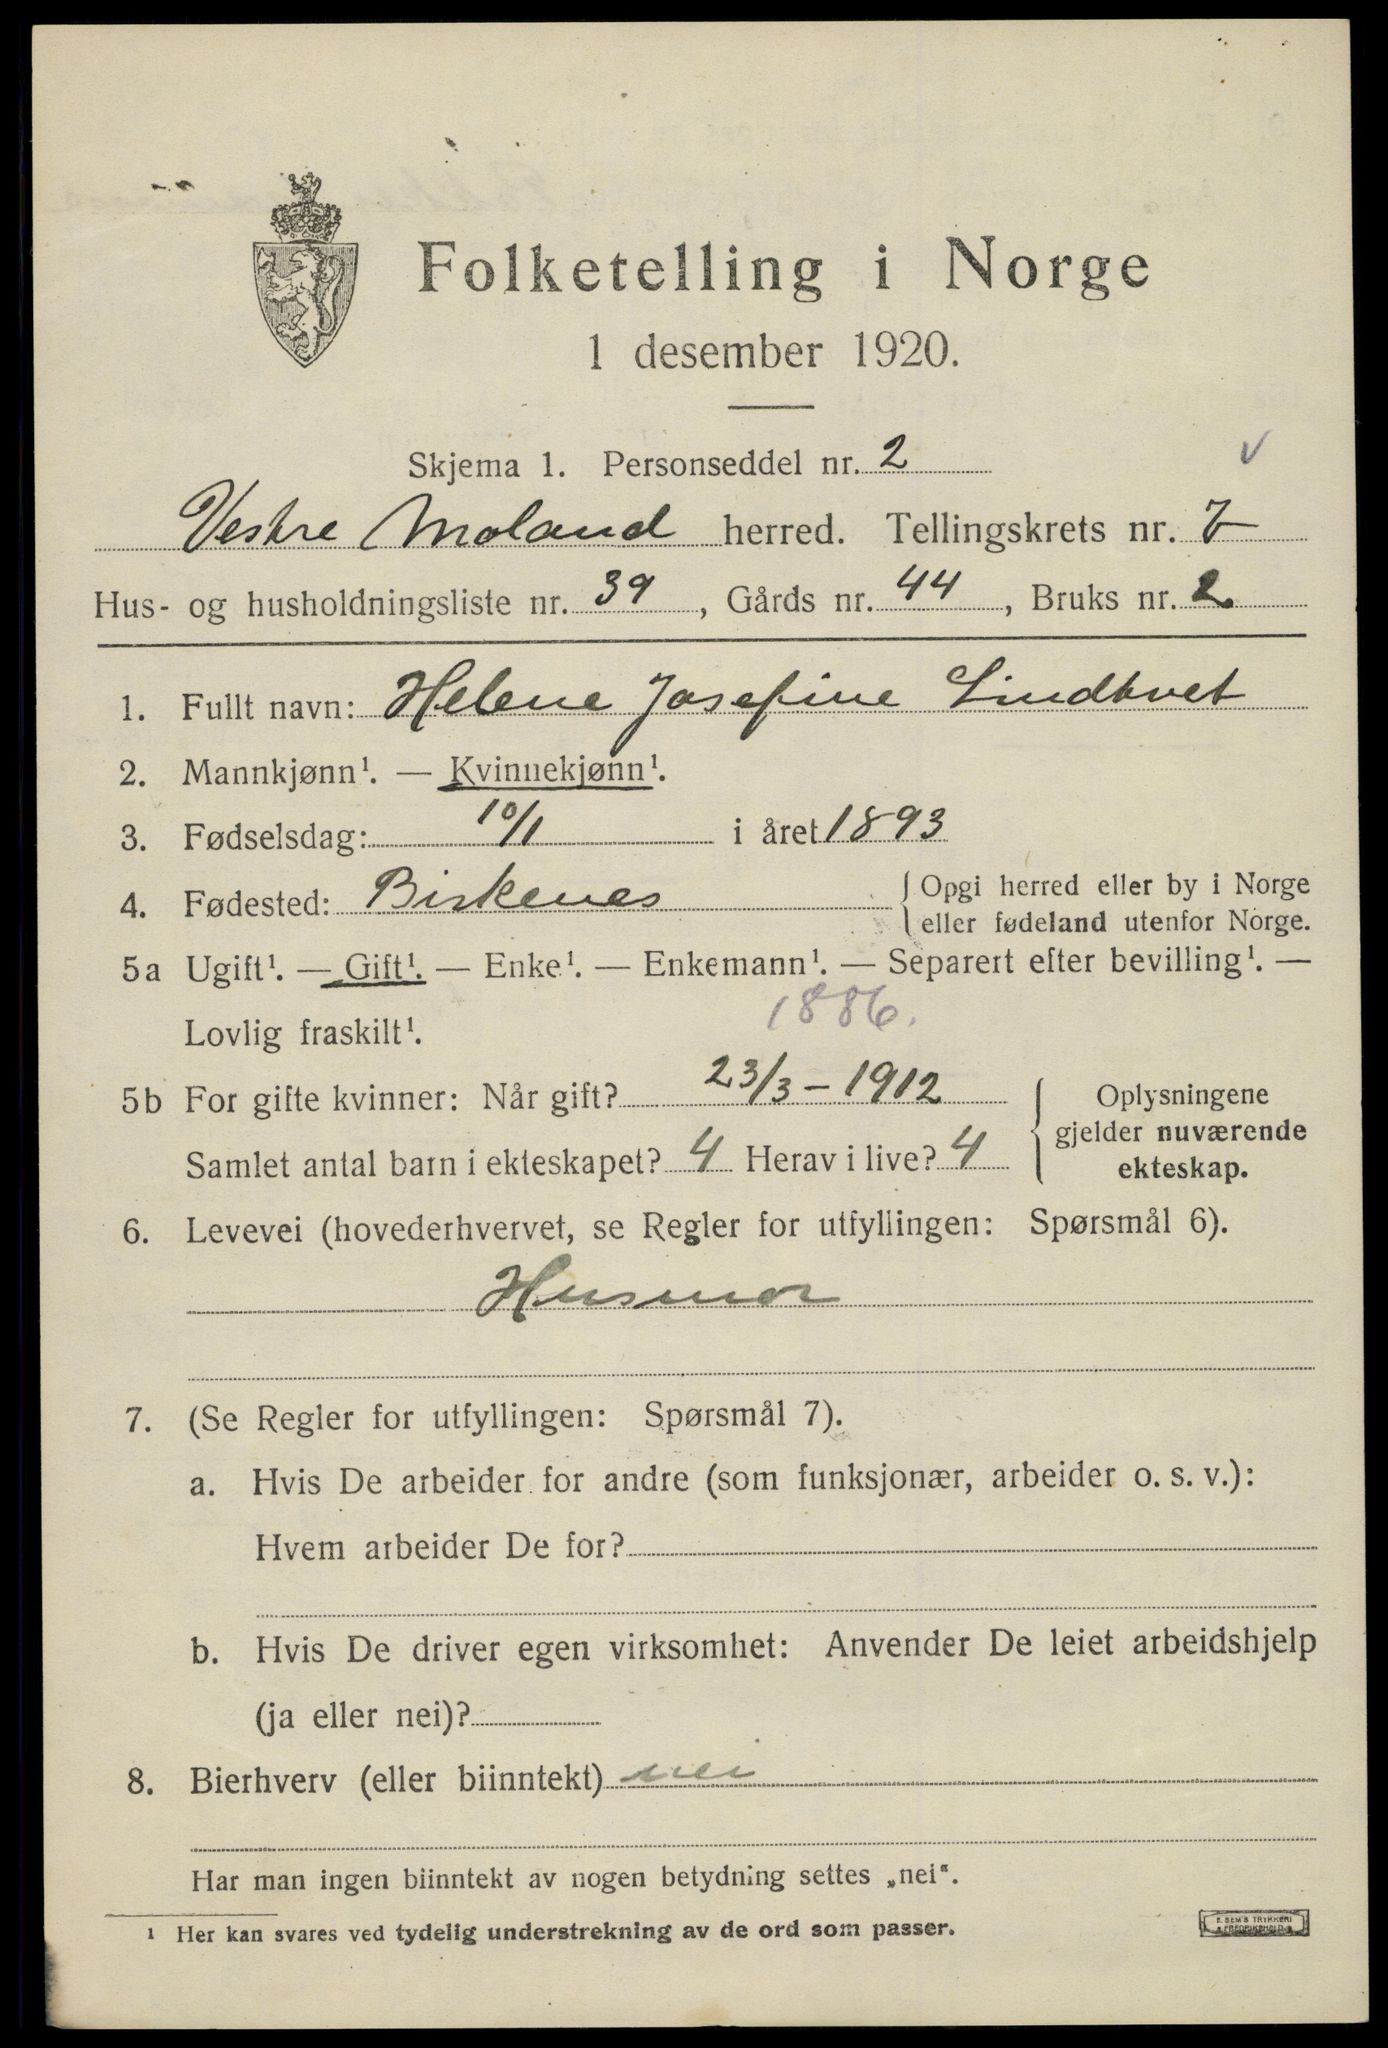 Folketelling i Norge
1 desember 1920.
Skjema 1. Personseddel nr. 2
v
Vestre Moland herred. Tellingskrets nr. 7
Hus- og husholdningsliste nr. 39, Gårds nr. 44, Bruks nr. 2
1. Fullt navn: Helene Josefine Lindtvet
2. Mannkjønn¹. — Kvinnekjønn¹.
3. Fødselsdag: 10/1 i året 1893
4. Fødested: Birkenes {Opgi herred eller by i Norge
eller fødeland utenfor Norge.
5a Ugift¹. — Gift¹. — Enke¹. — Enkemann¹. — Separert efter bevilling¹. —
Lovlig fraskilt¹. 1886.
5b For gifte kvinner: Når gift? 23/3 – 1912
Samlet antal barn i ekteskapet? 4 Herav i live? 4
Oplysningene
gjelder nuværende
ekteskap.
6. Levevei (hovederhvervet, se Regler for utfyllingen: Spørsmål 6).
Husmor
7. (Se Regler for utfyllingen: Spørsmål 7).
a. Hvis De arbeider for andre (som funksjonær, arbeider o. s. v.):
Hvem arbeider De for?
b. Hvis De driver egen virksomhet: Anvender De leiet arbeidshjelp
(ja eller nei)?
8. Bierhverv (eller biinntekt) nei
Har man ingen biinntekt av nogen betydning settes „nei“.
¹ Her kan svares ved tydelig understrekning av de ord som passer.
E. SEM'S TRYKKERI
FREDRIKSHALD